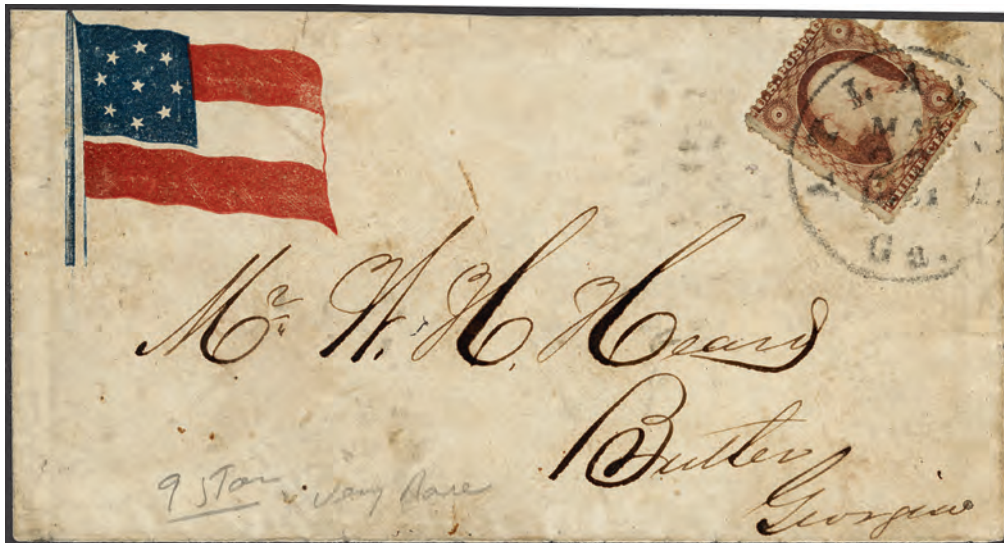 Ga.
Mr. W. H. Heard
Butler
Georgia
9 Star very Rare